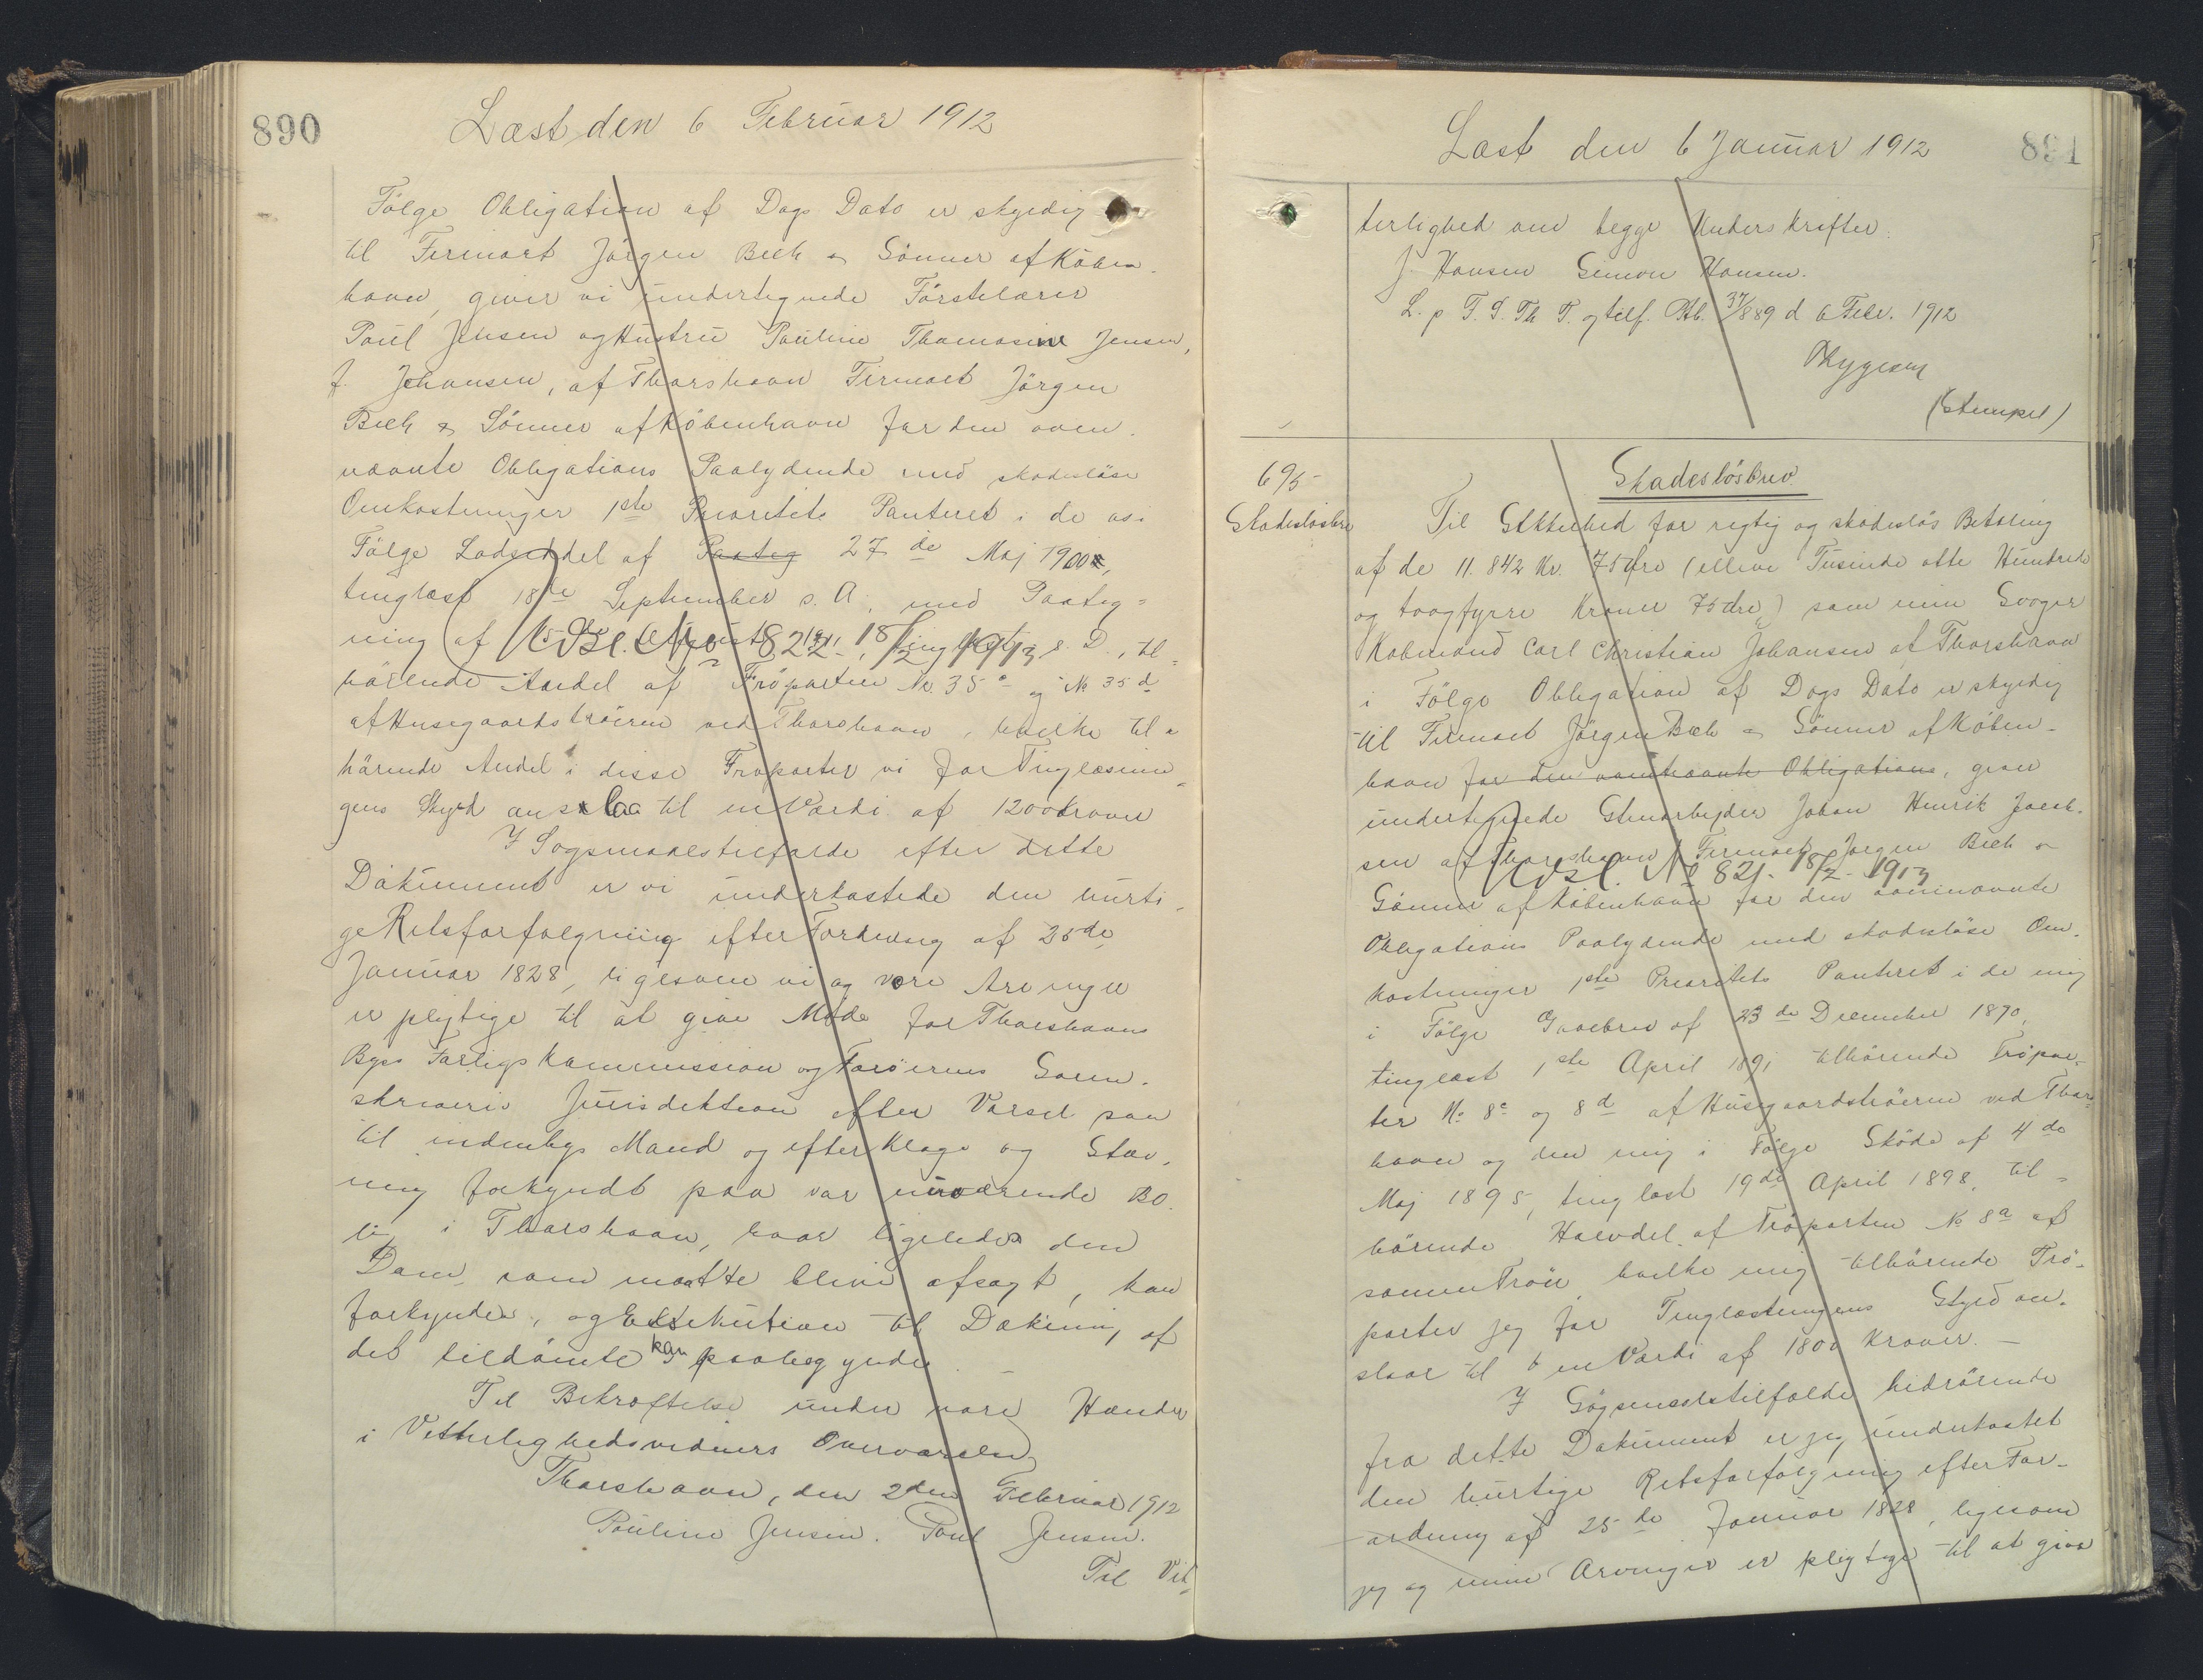 890
Læst den 6 Februar 1912
Følge Obligation af Dags Dato er skyldig
til Firmaet Jörgen Bech & Sönner af Köben-
havn, giver vi undertegnede Förstelærer
Poul Jensen og Hustru Pauline Thomasine Jensen,
f. Johansen, af Thorshavn Firmaet Jörgen
Bech & Sönner af Köbenhavn for den oven-
nævnte Obligations Paalydende med skadeslöse
Omkostninger 1ste Prioritets Panteret i de os i
Fölge Lodseddel af Paateg 27de Maj 1900,
tinglæst 18de September s. A. med Paateg-
ning af s. D., til-
Udsl. No 822. 18/2 1913
hörende Andel af Tröparten No. 35c og No 35d
af Husegaardströerne ved Thorshavn, hvilke til-
hörende Andel i disse Tröparter vi for Tinglæsnin-
gens Skyld anslaa til en Værdi af 1200 Kroner
I Sögsmaalstilfælde efter dette
Dokument er vi underkastede den hurti-
ge Retsforfølgning efter Fordning af 25de
Januar 1828, ligesom vi og vore Arvinger
er pligtige til at give Möde for Thorshavns
Byes Forligskommission og Færöernes Soren-
skriveris Jurisdiktion efter Varsel som
til indenbys Mand og efter Klage og Stæv-
ning forkyndt paa vor nuværende Bo-
lig i Thorshavn, hvor ligeledes den
Dom, som maatte blive afsagt, kan
forkyndes, og Exsekution til Dækning af
det tildömte kan paabegyndes. —
Til Bekræftelse under vore Hænder
i Vitterlighedsvidners Overværelse
Thorshavn, den 2den Februar 1912
Pauline Jensen. Poul Jensen.
Til Vit-
891
Læst den 6 Januar 1912
terlighed om begge Underskrifter.
J. Hansen Simon Hansen.
L. p T. S. Th T. og tilf. Ptb. 37/889 d 6 Febr. 1912
(Stempel)
69/5-
Skadeslösbrev
Skadeslösbrev
Til Sikkerhed for rigtig og skadeslös Betaling
af de 11.842 Kr. 75 Öre (elleve Tusinde otte Hundrede
og toogfyrre Kroner 75 Öre) som min Svoger
Købmand Carl Christian Johansen af Thorshavn
i Fölge Obligation af Dags Dato er skyldig
til Firmaet Jörgen Bech & Sönner af Köben-
havn for den ovennævnte Obligations, giver
undertegnede Stenarbejder Johan Henrik Joen-
sen af Thorshavn Firmaet Jörgen Bech &
Udsl. No 821. 18/2 - 1913
Sönner af Köbenhavn for den ovennævnte
Obligations Paalydende med skadeslöse Om-
kostninger 1ste Prioritets Panteret i de mig
i Fölge Gavebrev af 23de December 1890,
tinglæst 1ste April 1891 tilhörende Tröpar-
ter No 8c og 8d af Husegaardströerne ved Thors-
havn og den mig i Fölge Sköde af 4de
Maj 1895, tinglæst 19de April 1898, til-
hörende Halvdel af Tröparten No 8a af
samme Tröer, hvilke mig tilhörende Trö-
parter jeg for Tinglæsningens Skyld an-
slaar til en Værdi af 1800 Kroner. —
I Sögsmaalstilfælde hidrörende
fra dette Dokument er jeg underkastet
den hurtige Retsforfølgning efter For-
ordning af 25de Januar 1828, ligesom
jeg og mine Arvinger er pligtige til at give